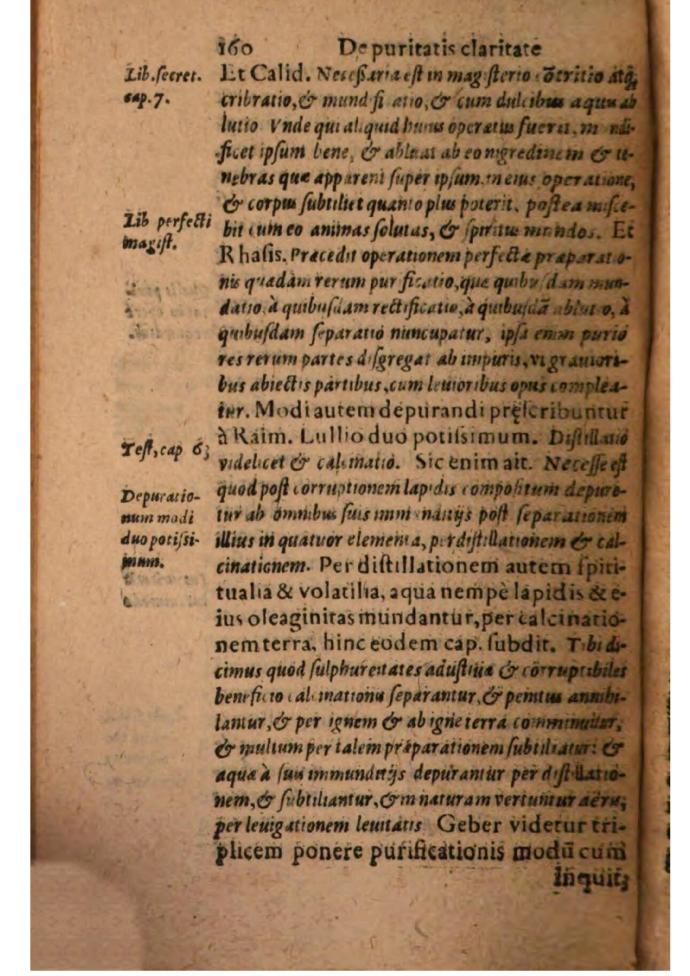 160 De puritatis claritate
Lib. secret.
cap. 7.
Lib perfecti
magist.
Test, cap 63
Depuratio-
num modi
duo potissi-
mum.
Et Calid. Necessaria est in magisterio cōtritio atq;
cribratio, & mundifi atio, & cum dulcibus aquis ab
lutio Vnde qui aliquid huius operatus fuerit, m ndi-
ficet ipsum bene, & abluat ab eo nigredinem & te-
nebras quæ apparent super ipsum in eius operatione,
& corpus subtiliet quanto plus poterit, postea misce-
bit cum eo animas solutas, & spiritus mundos. Et
Rhasis. Præcedit operationem perfectæ præparatio-
nis quædam rerum purificatio, quæ quibusdam mun-
datio, à quibusdam rectificatio, à quibusdā ablutio, à
quibusdam separatio nuncupatur, ipsa enim purio
res rerum partes disgregat ab impuris, vt grauiori-
bus abiectis partibus, cum leuioribus opus complea-
tur. Modi autem depurandi præscribuntur
à Raim. Lullio duo potissimum. Distillatio
videlicet & calcinatio. Sic enim ait. Necesse est
quod post corruptionem lapidis compositum depure-
tur ab omnibus suis immunditijs post separationem
illius in quatuor elementa, per distillationem & cal-
cinationem. Per distillationem autem spiri-
tualia & volatilia, aqua nempè lapidis & e-
ius oleaginitas mundantur, per calcinatio-
nem terra. hinc eodem cap. subdit. Tibi di-
cimus quod sulphureitates adustiuæ & corruptibiles
beneficio calcinationis separantur, & penitus annihi-
lantur, & per ignem & ab igne terra comminuitur,
& multum per talem præparationem subtiliatur: &
aqua à suis immunditijs depurantur per distillatio-
nem, & subtiliantur, & in naturam vertuntur aëris,
per leuigationem leuitatis Geber videtur tri-
plicem ponere purificationis modū cum
inquit;